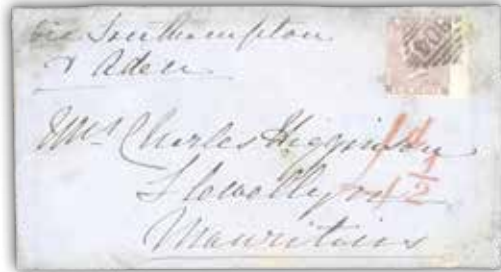 via Southampton
& Aden
Mrs Charles Higginson
1d
1/2
Mauritius